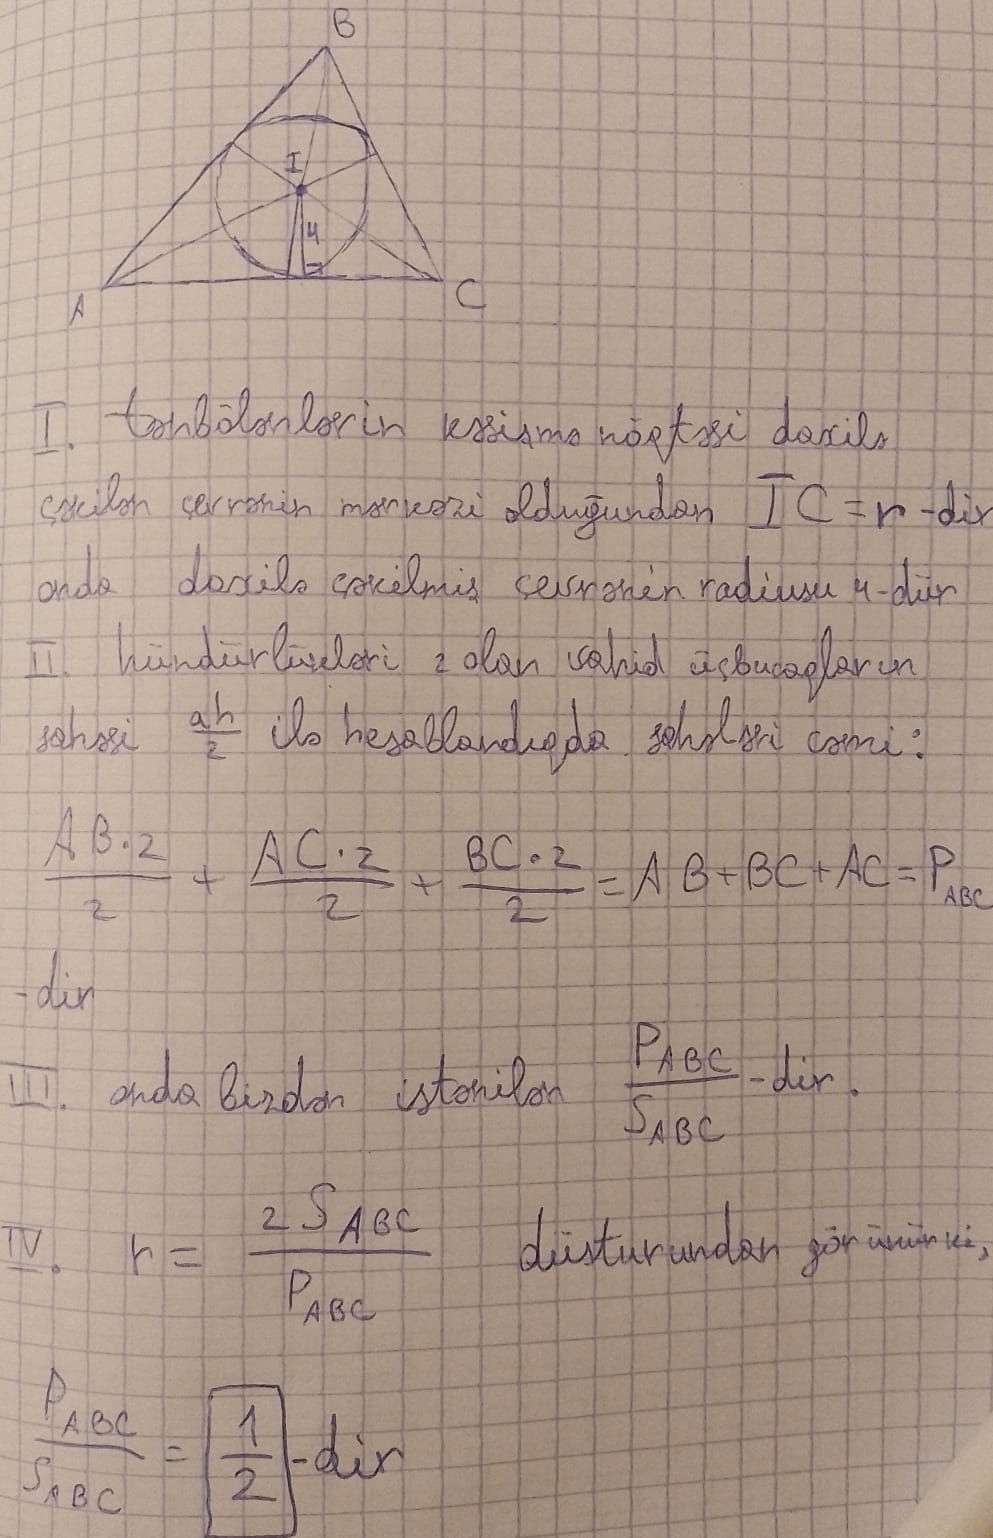 B
I
4
A
C
I. tənbölənlərin kəsişmə nöqtəsi daxilə
çəkilən çevrənin mərkəzi olduğundan IC=r-dir
onda daxilə çəkilmiş çevrənin radiusu 4-dür
II. hündürlükləri 2 olan vahid üçbucaqların
sahəsi ah/2 ilə hesablandıqda sahələri cəmi:
AB·2/2 + AC·2/2 + BC·2/2 = AB+BC+AC=P_ABC
-dir
III. onda bizdən istənilən P_ABC/S_ABC -dir.
IV. r = 2S_ABC/P_ABC düsturundan görünür ki,
P_ABC/S_ABC = 1/2 -dir